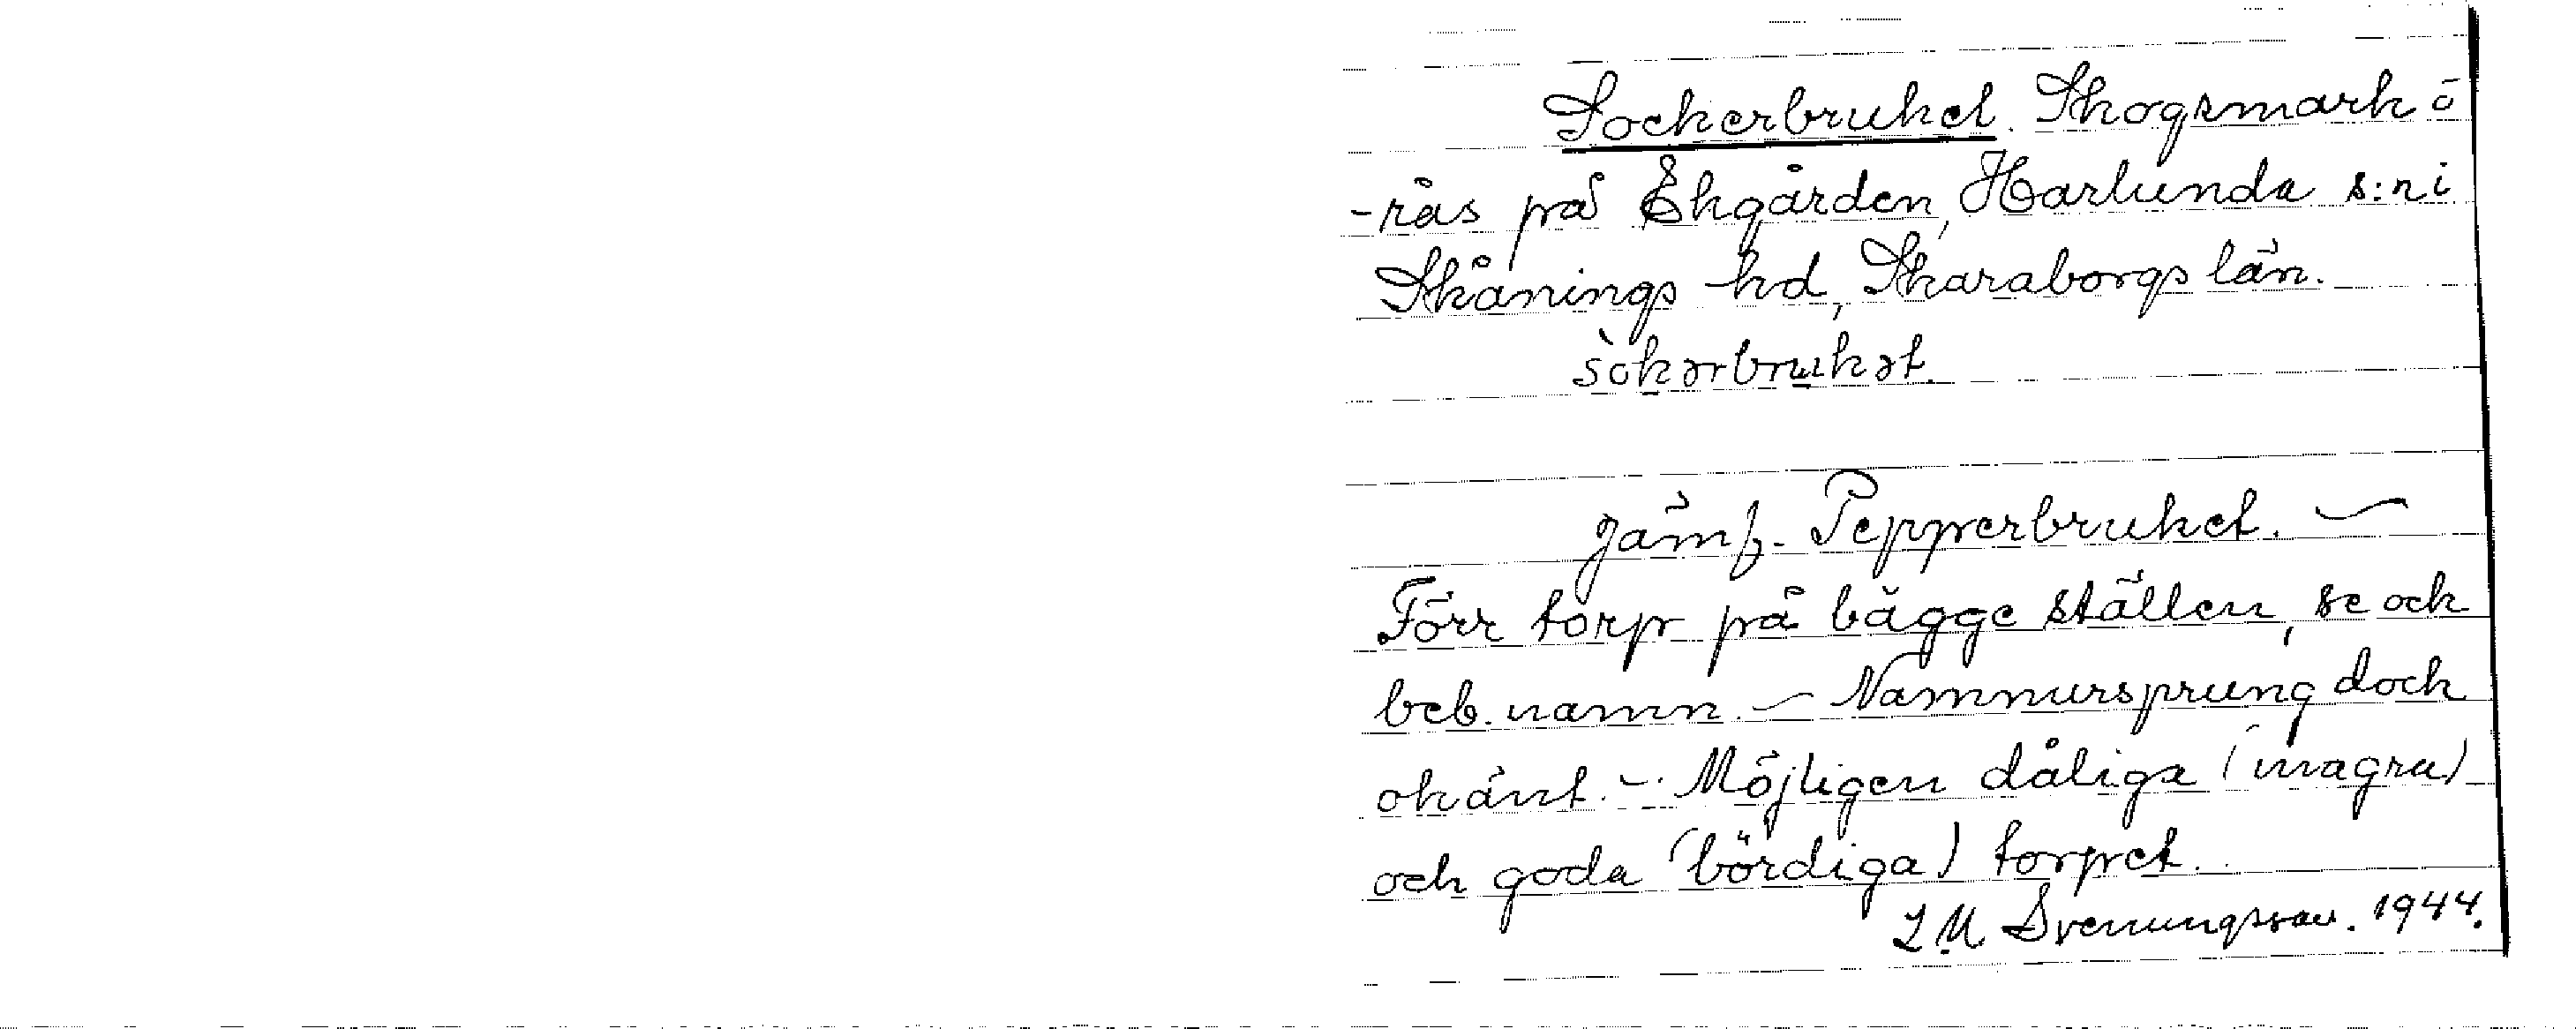 Sockerbruket. Skogsmark ö
-rås på Ekgården, Harlunda s:n i
Skånings hd, Skaraborgs län.
sòkərbrukət.
Jämf. Pepperbruket. –
Förr torp på bägge ställen, se och
beb. namn. – Namnursprung dock
okänt. – Möjligen dåliga (magra)
och goda (bördiga) torpet.
L M Svenungsson. 1944.